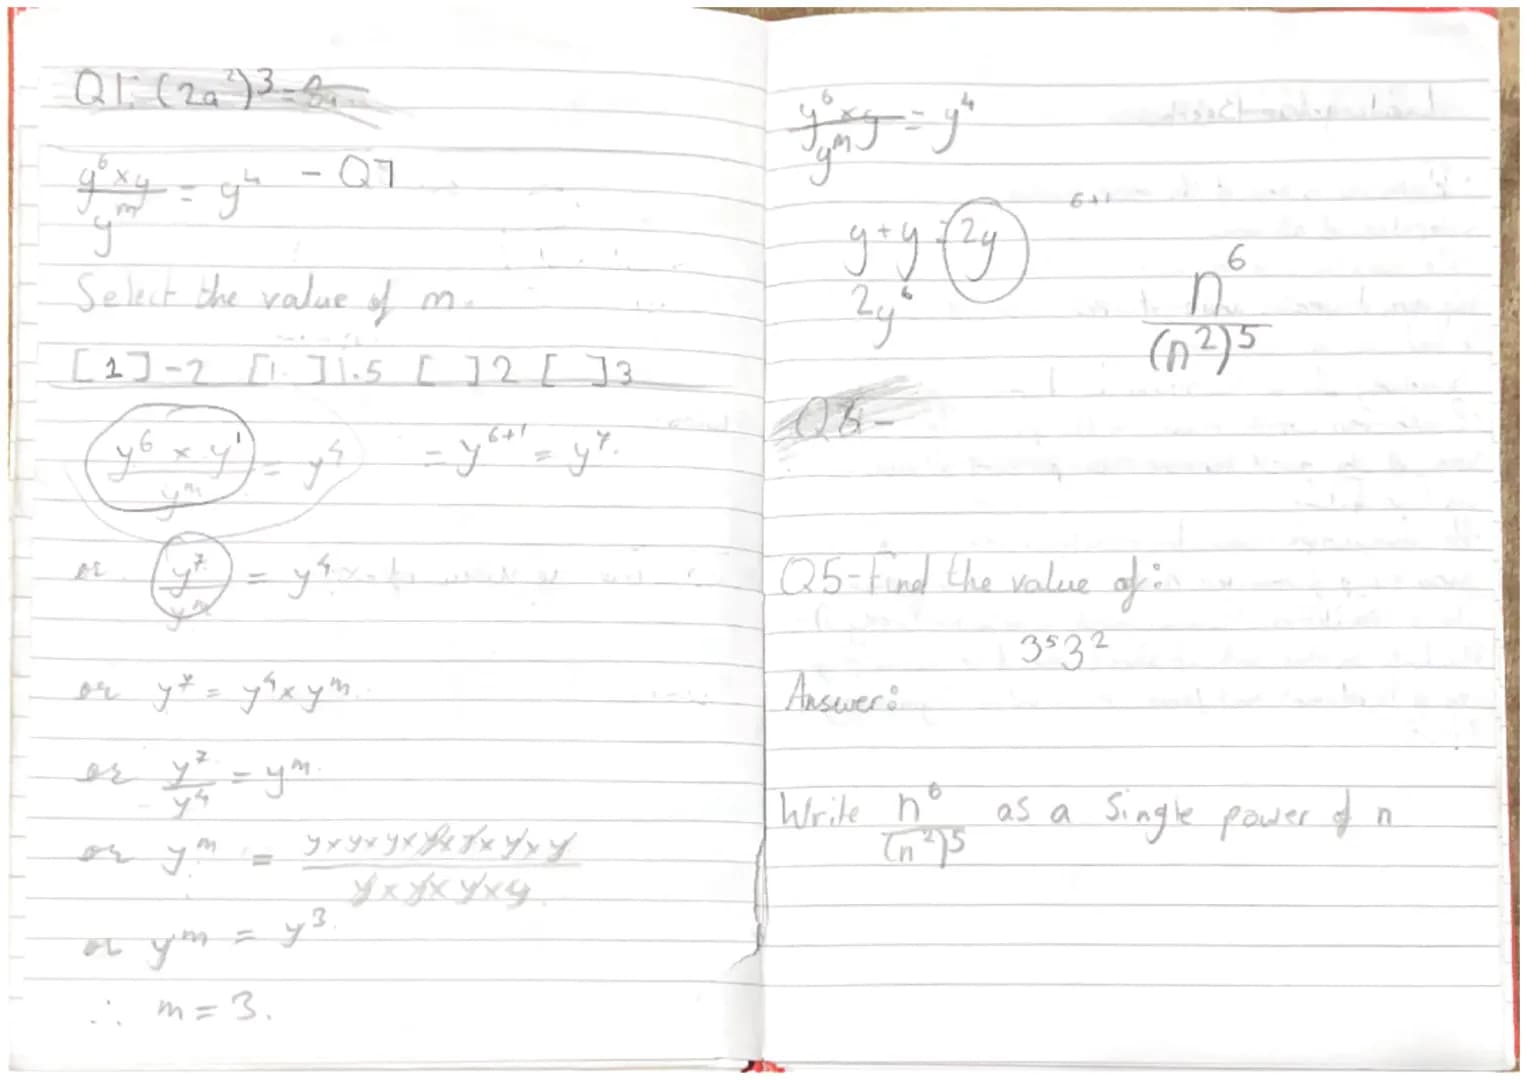 Q1: (2a²)³ =
y⁶ × y / yᵐ = y⁴ - Q7
Select the value of m.
[1] -2 [1. ] 1.5 [ ] 2 [ ] 3
y⁶ × y¹ / yᵐ = y⁴ = y⁶⁺¹ = y⁷.
or y⁷ / yᵐ = y⁴
or y⁷ = y⁴ × yᵐ.
or y⁷ / y⁴ = yᵐ.
or yᵐ = y×y×y×y×y×y×y / y×y×y×y.
or yᵐ = y³.
∴ m = 3.
y⁶ × y / yᵐ = y⁴
6+1
y + y = 2y
2y⁶
n⁶ / (n²)⁵
Q5 - Find the value of:
3⁵3²
Answer:
Write n⁶ / (n²)⁵ as a Single power of n